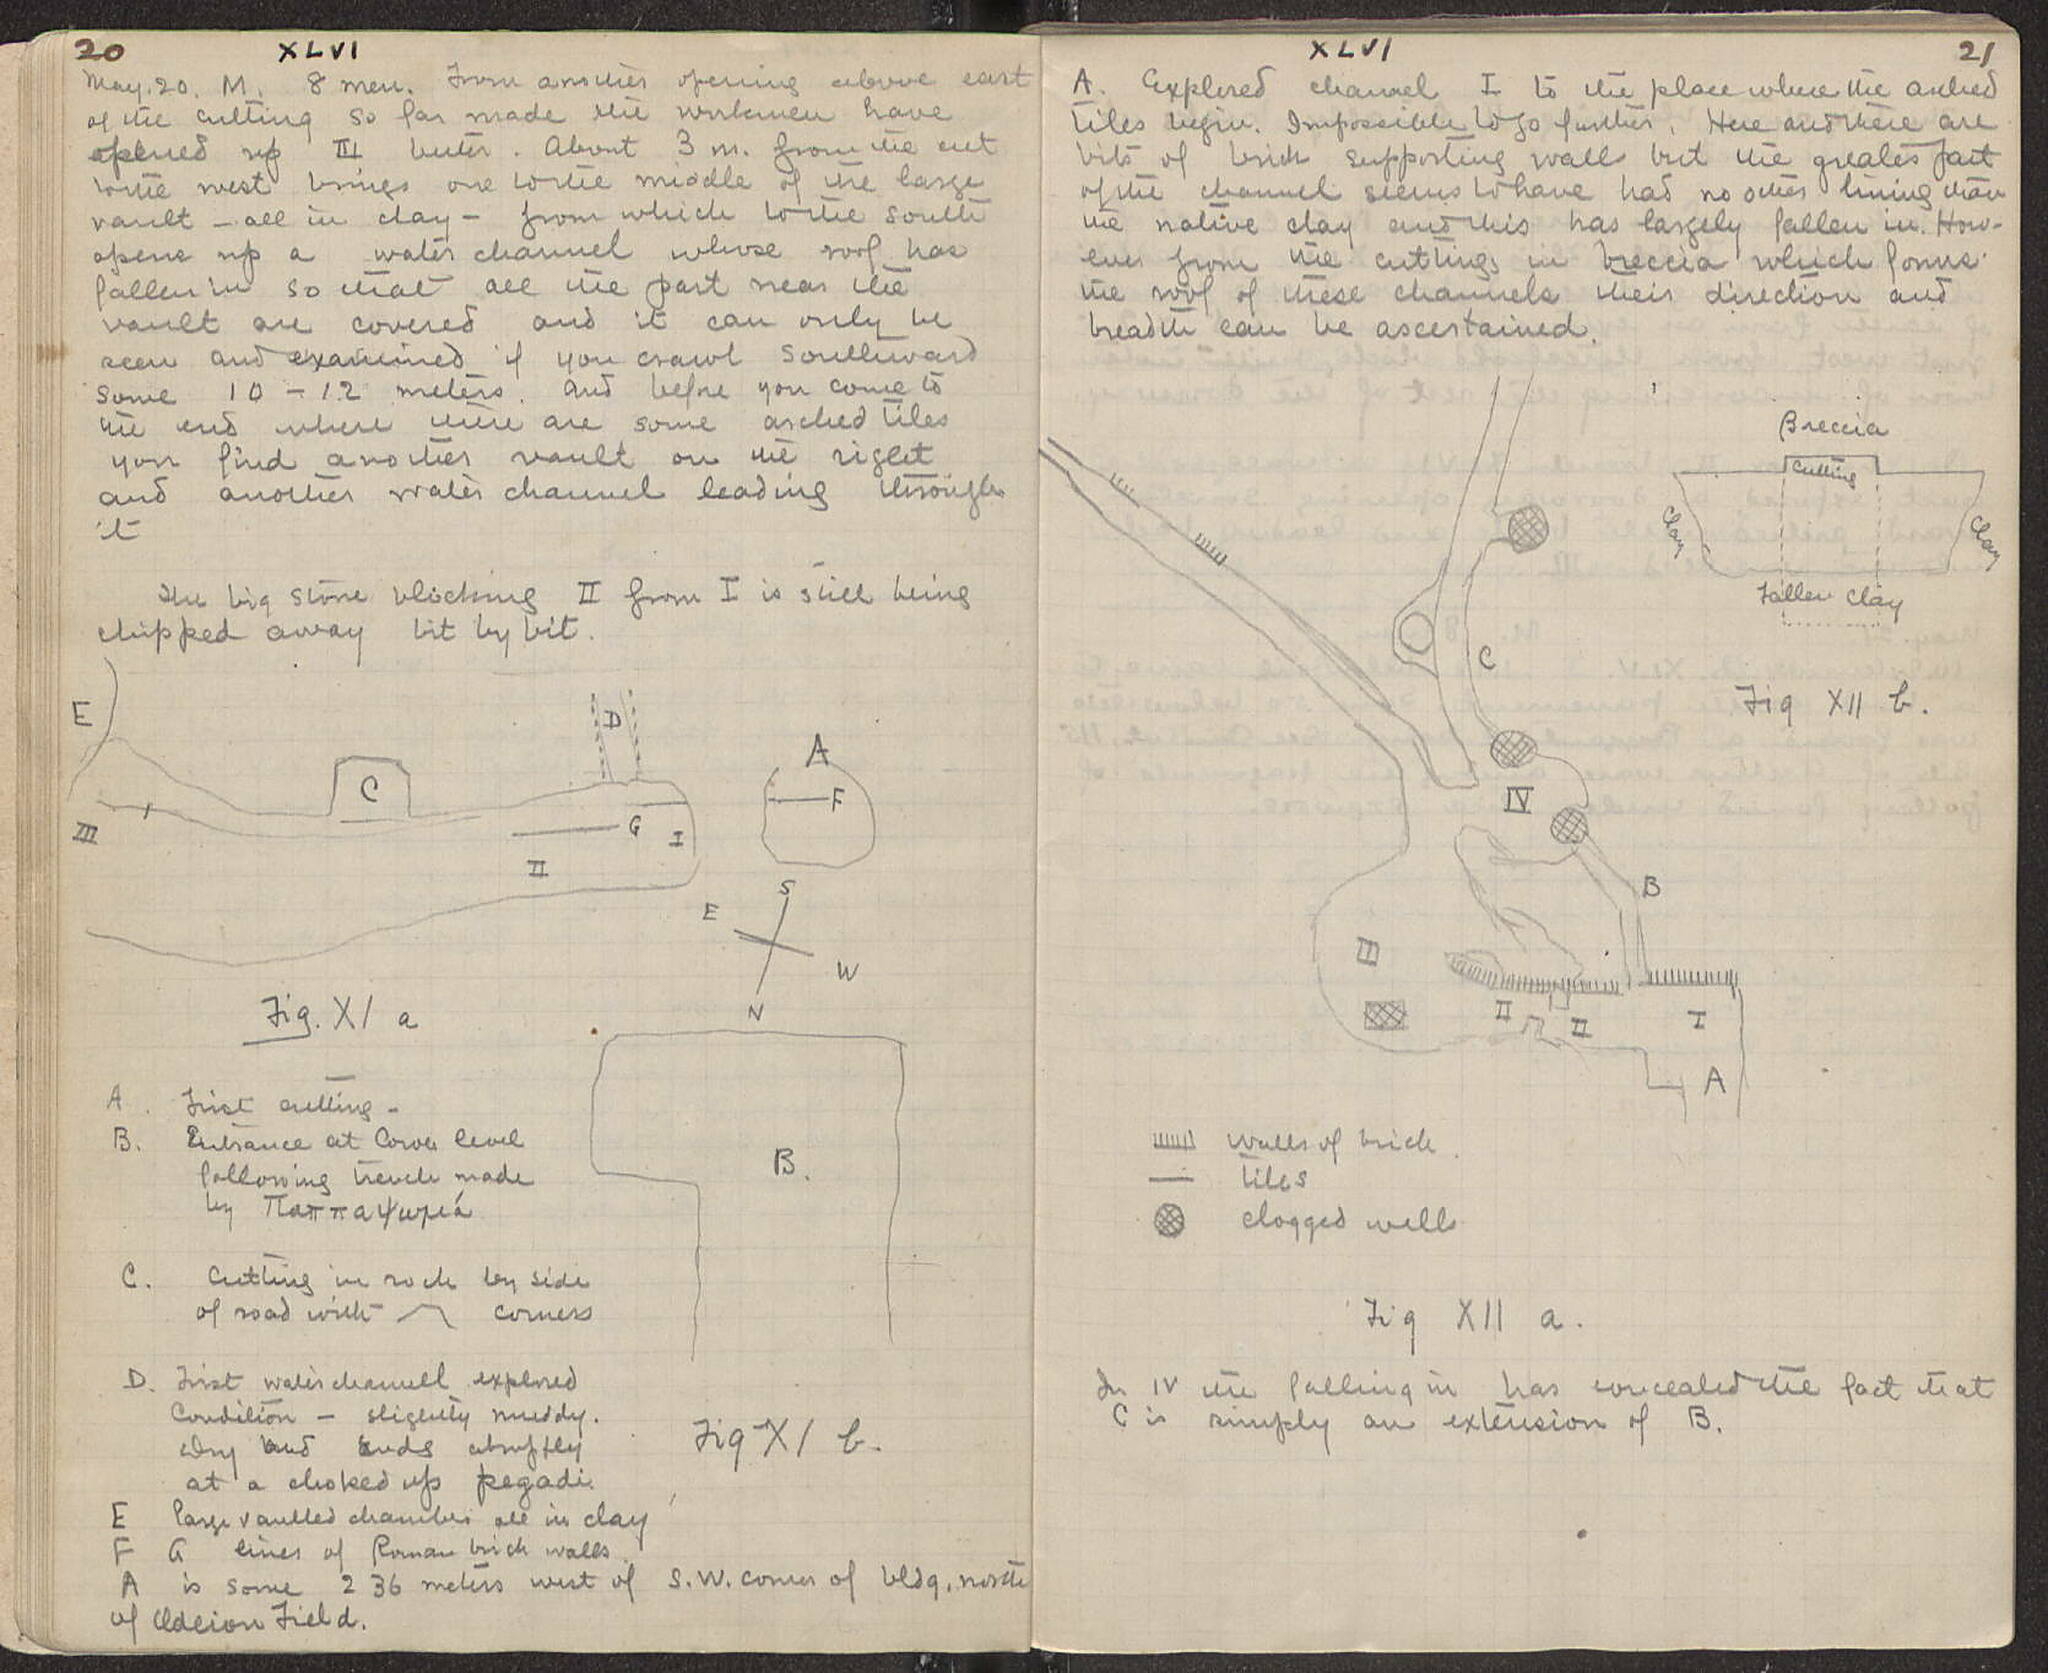 20
XLVI
May. 20. M. 8 men. From another opening above east
of the cutting so far made the workmen have
opened up III better. About 3 m. from the cut
to the west brings one to the middle of the large
vault - all in clay - from which to the south
opens up a water channel whose roof has
fallen in so that all the part near the
vault are covered and it can only be
seen and examined if you crawl southward
some 10 - 12 meters. And before you come to
the end where there are some arched tiles
you find another vault on the right
and another water channel leading through
it
The big stone blocking II from I is still being
chipped away bit by bit.
E
D
A
C
F
III
G
I
II
S
E
W
N
Fig. XI a
A. First cutting -
B. Entrance at lower level
following trench made
by Παππαψωμιά
B.
C. Cutting in rock by side
of road with corners
D. First water channel explored
Condition - slightly muddy.
Dry and ends abruptly
at a choked up pegadi.
Fig XI b.
E large vaulted chamber all in clay
F G lines of Roman brick walls.
A is some 236 meters west of S.W. corner of bldg. north
of Odeion Field.
XLVI
21
A. Explored channel I to the place where the arched
tiles begin. Impossible to go further. Here and there are
bits of brick supporting walls but the greater part
of the channel seems to have had no other lining than
the native clay and this has largely fallen in. How-
ever from the cuttings in breccia which forms
the roof of these channels their direction and
breadth can be ascertained.
Breccia
Cutting
Clay
Clay
Fallen Clay
C
Fig XII b.
IV
B
III
II
II
I
A
walls of brick.
tiles
clogged wells
Fig XII a.
In IV the falling in has concealed the fact that
C is simply an extension of B.